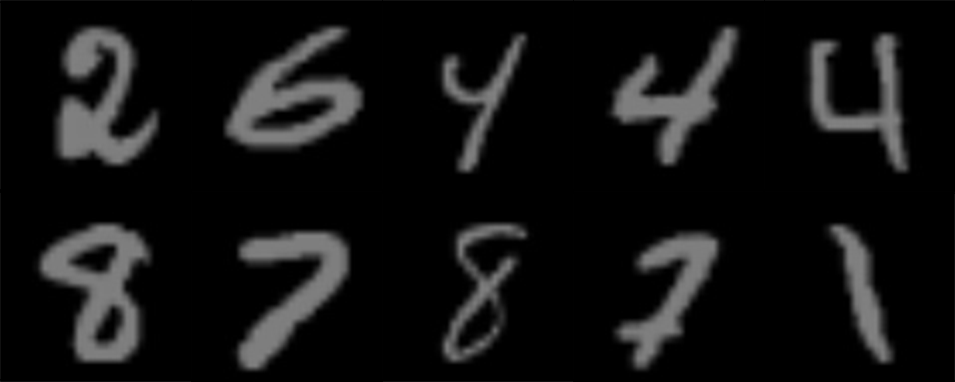 2 6 4 4 4
8 7 8 7 1